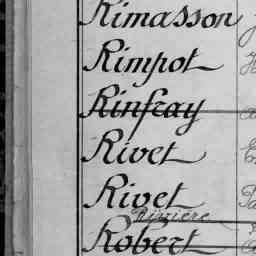 Rimasson
Rimpot
Rinfray
Rivet
Rivet
Rivière
Robert